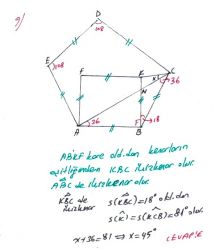 9)
D
108
E
108
F
K
C
x
36
N
A
36
F
18
B
ABKF kare old.dan kenarların
eşitliğinden KBC ikizkenar olur.
ABC de ikizkenar olur.
KBC de s(KBC)=18° old.dan
ikizkenar s(K)=s(KCB)=81° olur.
x+36=81 ⇒ x=45°
CEVAP:E